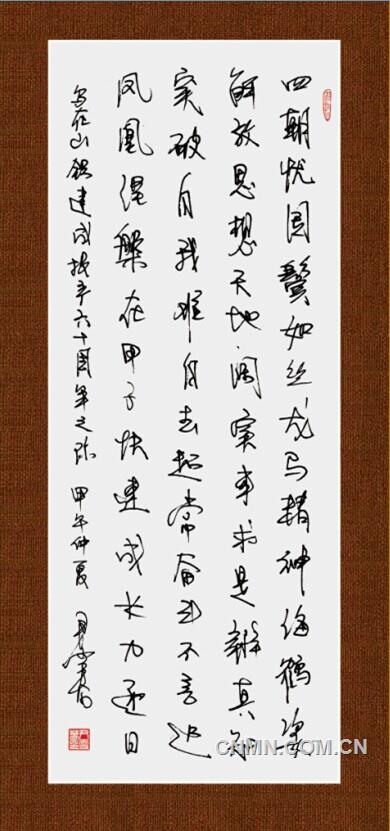 四朝忧国鬓如丝龙马精神海鹤姿
解放思想天地阔实事求是辨真知
突破自我难自去超常奋斗不言迟
凤凰涅槃在甲子快速成长力近日
写在山铝建成投产六十周年之际 甲午仲夏
CNMN.COM.CN